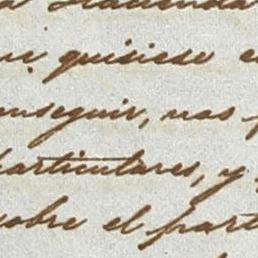 a Hacienda
quisiese
nseguir, nos
particulares, y
sobre el part